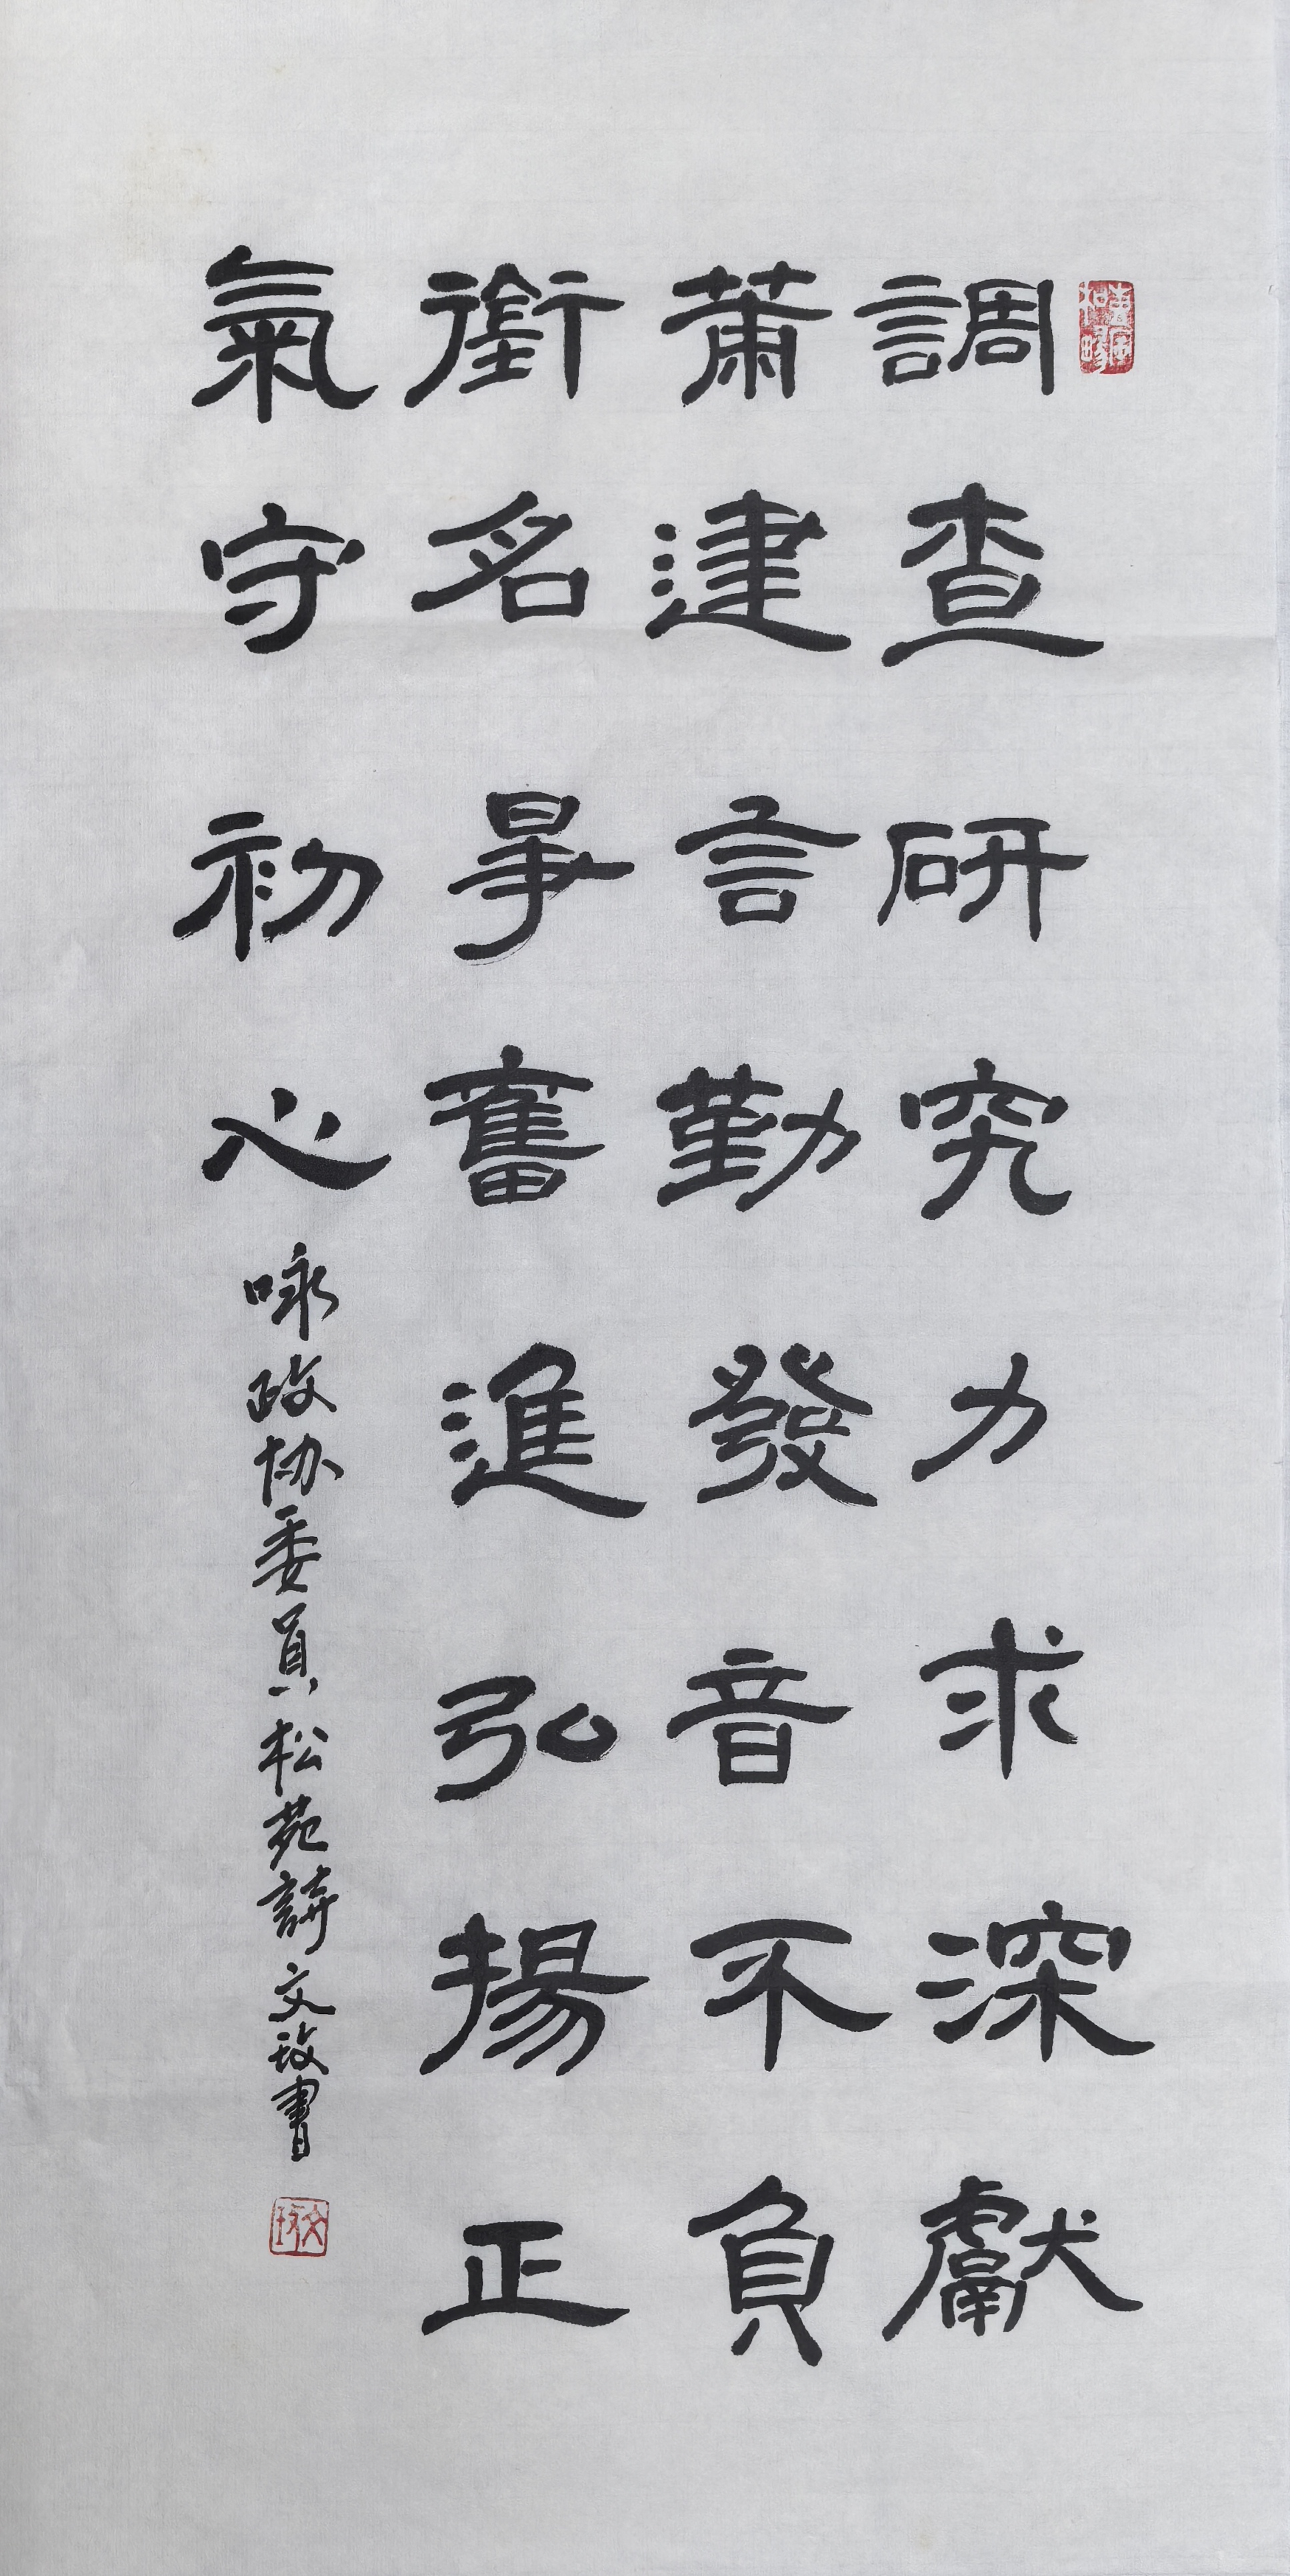 調查研究力求深獻
策建言勤發音不負
銜名奮進弘揚正
氣守初心
咏政协委員松苑詩文玫書
文玫